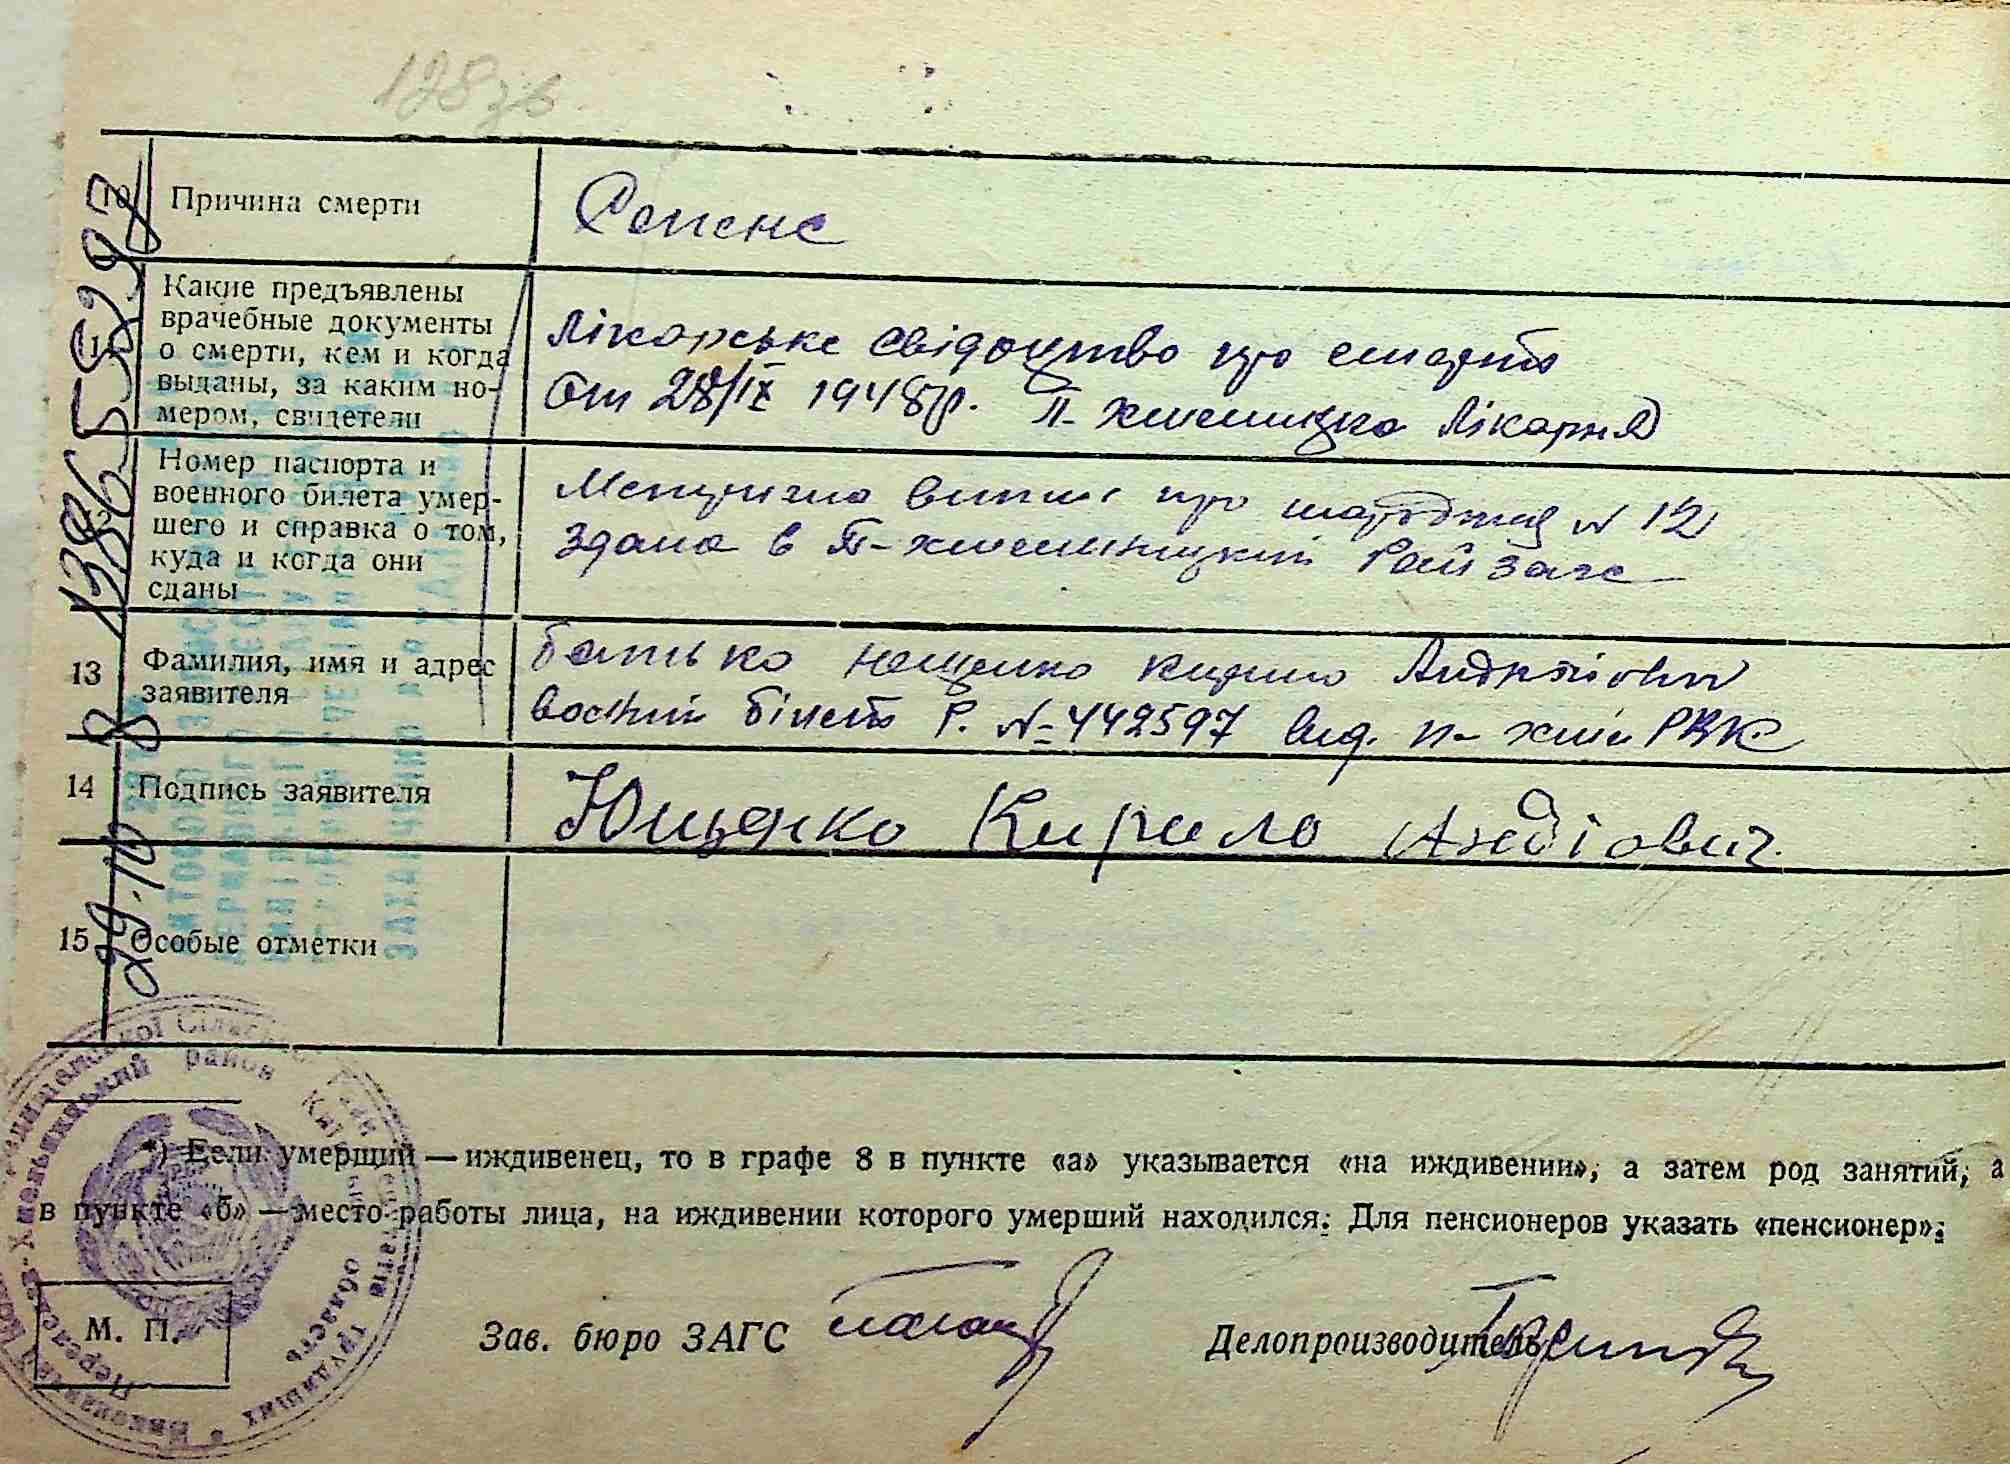 128зв
10 Причина смерти
Сепсис
11 Какие предъявлены
врачебные документы
о смерти, кем и когда
выданы, за каким но-
мером, свидетели
Лікарське свідоцтво про смерть
От 28/IX 1948 р. П-Хмельницка Лікарня
12 Номер паспорта и
военного билета умер-
шего и справка о том,
куда и когда они
сданы
випис про народження № 12
здана в П-Хмельницкий РайЗагс
13 Фамилия, имя и адрес
заявителя
батько Ющенко Кирило Андрійович
воєнний білет Р. № 442597 вид. П-Хмел РВК
14 Подпись заявителя
Ющенко Кирило Андіович
15 Особые отметки
*) Если умерший — иждивенец, то в графе 8 в пункте «а» указывается «на иждивении», а затем род занятий, а
в пункте «б» — место работы лица, на иждивении которого умерший находился. Для пенсионеров указать «пенсионер».
М. П.
Зав. бюро ЗАГС
Делопроизводитель
Переяслав-Хмельницький район Київська область